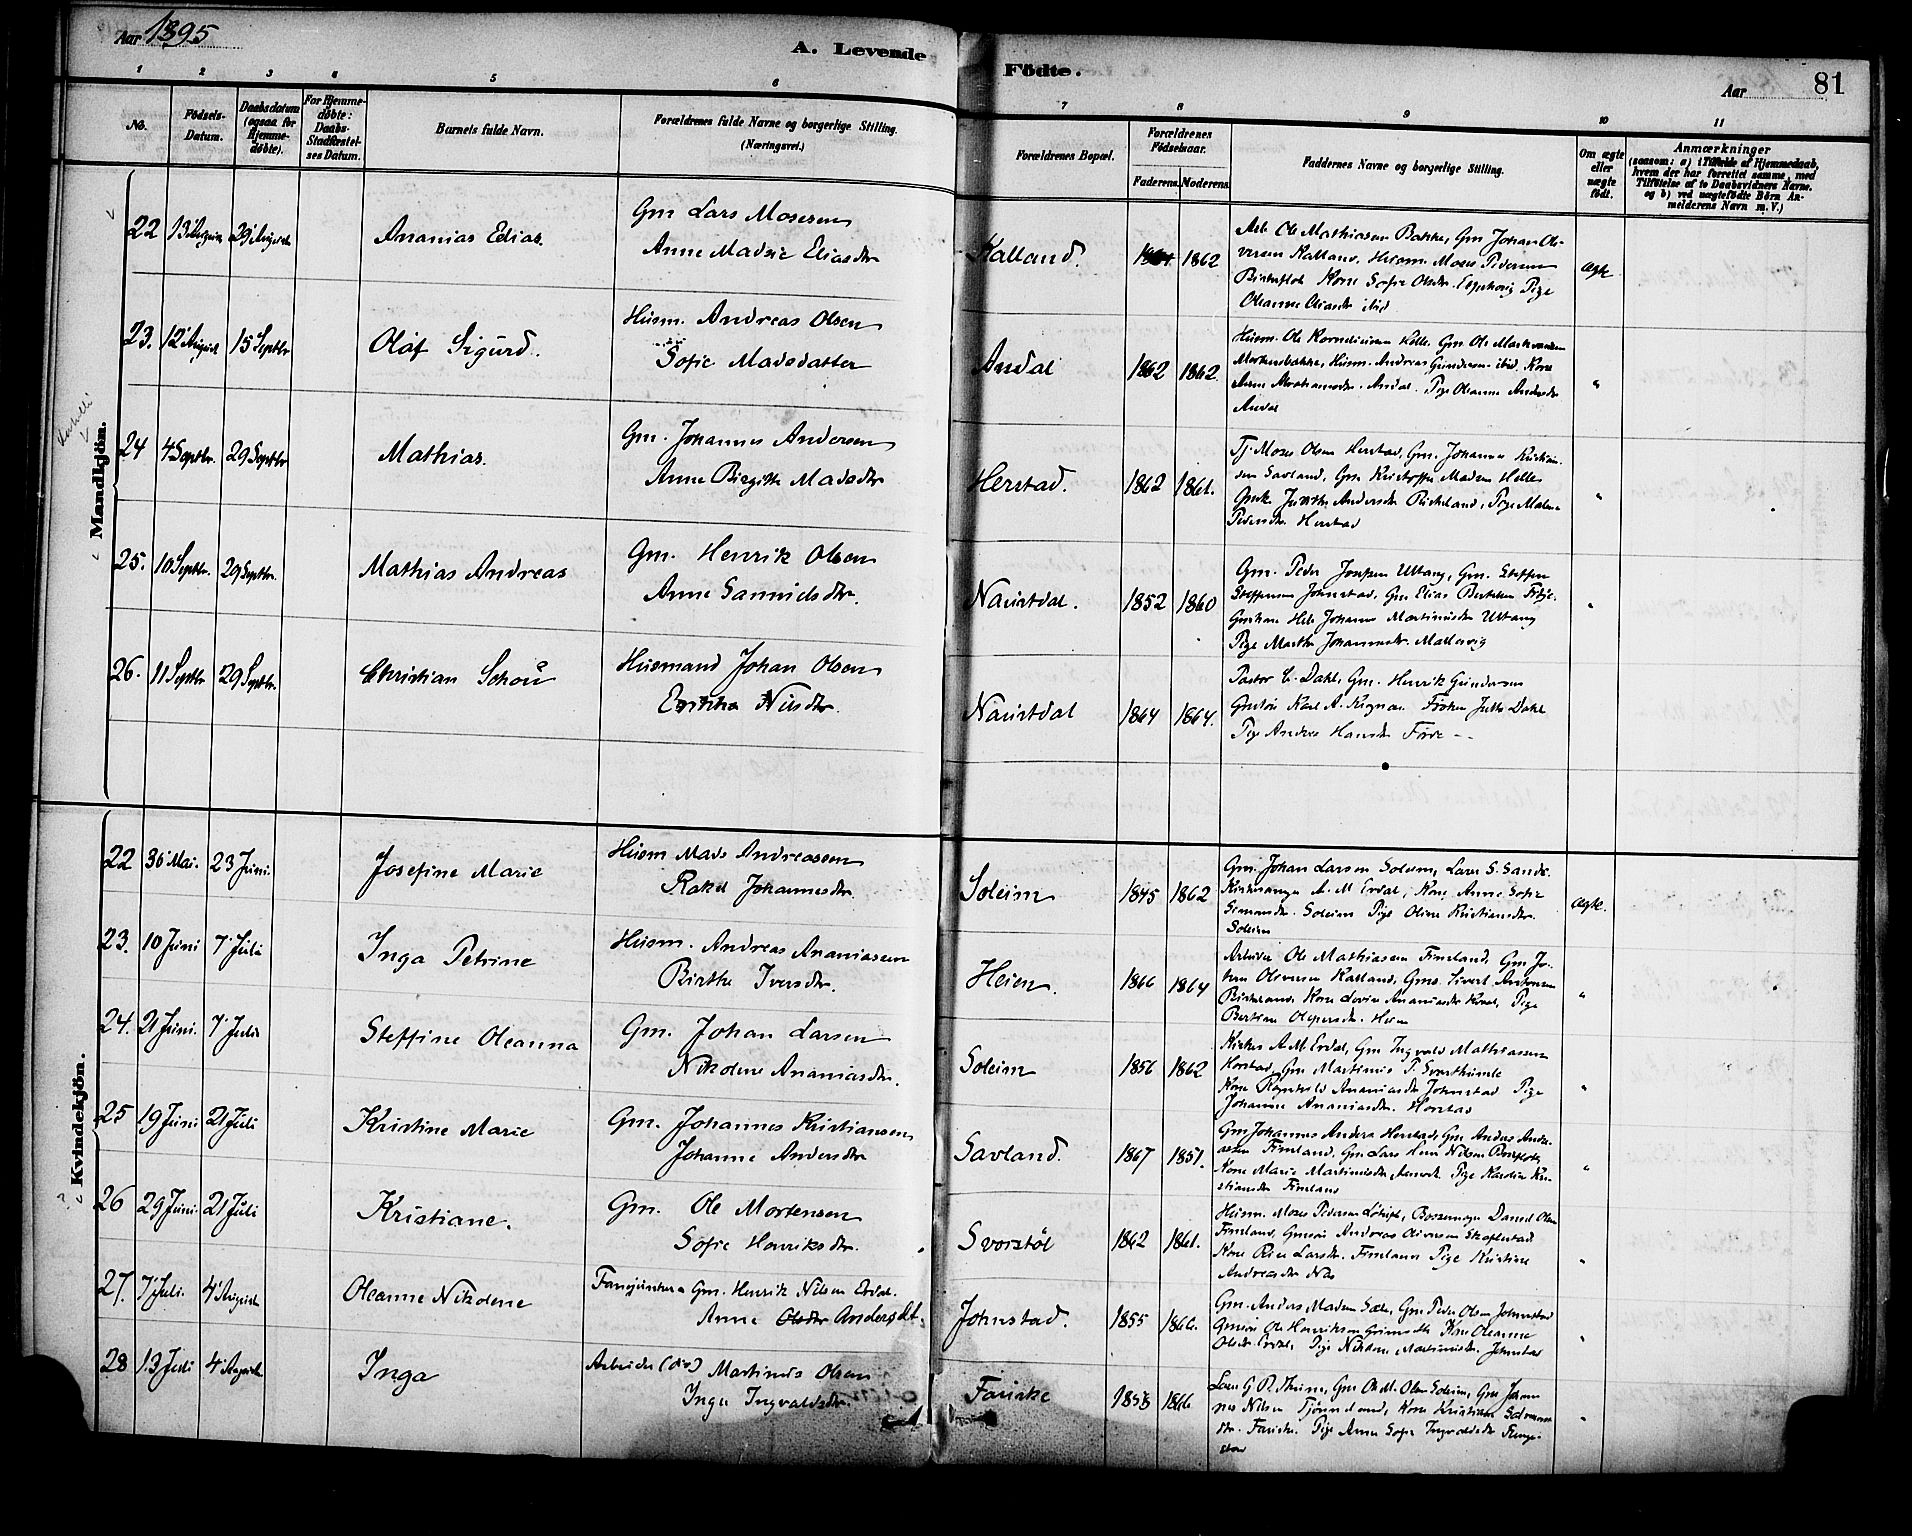 Aar 1895
A. Levende
Födte.
Aar
81
1 2 3 4 5 6
7 8 9 10 11
No.
Födsels-
Datum.
Daabsdatum
(ogsaa for
Hjemme-
döbte).
For Hjemme-
döbte:
Daabs-
Stadfæstel-
ses Datum.
Barnets fulde Navn.
Forældrenes fulde Navne og borgerlige Stilling.
(Næringsvei.)
Forældrenes Bopæl.
Forældrenes
Födselsaar.
Faderens. Moderens.
Faddernes Navne og borgerlige Stilling.
Om ægte
eller
uægte
født.
Anmærkninger
(saasom: a) i Tilfælde af Hjemmedaab,
hvem der har forrettet samme, med
Tilföielse af to Daabsvidners Navne.
og b) ved uægtefødte Börn An-
melderens Navn m. V.)
Mandkjön.
22 13 August 29 August Ananias Elias.
Gm Lars Mosesen
Anne Madsie Eliasdtr
Kalland. 1862
Arb Ole Mathiassen Bakke, Gm Johan Oli-
versen Kalland, Husm. Moses Pedersen
Kone Sofie Olsdtr. Pige
Oleanne ibid
Ægte
23. 12 August 15 Septbr Olaf Sigurd.
Husm. Andreas Olsen
Sofie Madsdatter
Andal 1862 1862.
Husm. Ole Gm Ole
Husm. Andreas Gundersen ibid, Kone
Anne Abrahamsdtr. Andal. Pige Oleanne Andersdtr
Andal
"
24 4 Septbr. 29 Septbr Mathias.
Gm. Johannes Andersen
Anne Birgitte Madsdtr
Herstad. 1862 1861.
Tj. Moses Olsen Herstad, Gm. Johannes Kristian-
sen Savland, Gm Kristoffer Madsen Helle
Andersdtr Birkeland, Pige
Pedersdtr. Herstad
"
25. 10 Septbr. 29 Septbr. Mathias Andreas
Gm. Henrik Olsen
Anne Samuelsdtr.
Naustdal. 1852 1860
Gm. Peder Josefsen Ultang, Gm. Steffen
Steffensen Johnstad, Gm Elias
Johanne Martinusdtr Ultang
Pige Marthe Johannesdtr.
"
26. 11 Septbr 29 Septbr. Christian Schou
Husmand Johan Olsen
Nilsdtr.
Naustdal 1864 1864.
Pastor C. Dahl, Gm. Henrik Gundersen
Karl A. Frøken Dahl
Pige Andrea Hansdtr Förde
Kvindekjön.
22 30 Mai. 23 Juni. Josefine Marie
Husm Mads Andreassen
Rakel Johannesdtr.
Soleim 1845 1862
Gm. Johan Larsen Soleim, Lærer S. Sande.
Kirkesanger A. M. Erdal, Kone Anne Sofie
Simonsdtr. Soleim Pige Oline Kristiansdtr.
Soleim
Ægte.
23. 10 Juni 7 Juli Inga Petrine
Husm. Andreas Ananiassen
Birthe Iversdtr.
Heien. 1866 1864
Arbeider Ole Mathiassen Fimland, Gm Jo-
han Oliversen Kalland, Sivert Antonsen
Birkeland, Kone Lovise Ananiasdtr Pige
Heien
"
24. 21 Juni. 7 Juli Steffine Oleanna
Gm. Johan Larsen
Nikoline Ananiasdtr.
Soleim 1856 1862
A. M. Erdal, Gm Ingvald Mathiassen
Horstad, Gm Martinus P. Svarthumle
Kone Ragnhild Ananiasdtr Johnstad Pige
Johanne Ananiasdtr. Horstad
"
25 19 Juni 21 Juli Kristine Marie
Gm. Johannes Kristiansen
Johanne Andersdtr
Savland. 1867 1851.
Gm Johannes Anders Herstad, Gm Anders Andre-
assen Fimland, Gm Lars Nilsen
Kone Marie Martinusdtr Pige Karoline Kri-
stiansdtr Fimland
"
26 29 Juni. 21 Juli Kristiane.
Gm. Ole Mortensen
Sofie Henriksdtr.
Svorstöl 1862 1861.
Husm. Moses Pedersen Daniel Olsen
Fimland, Andreas Oliversen
Kone Larsdtr. Fimland Pige Kristine
Andreasdtr
"
27. 7 Juli. 4 August Oleanne Nikoline
Gm. Henrik Nilsen Erdal.
Anne Olsdtr Andersdt.
Johnstad. 1855 1866.
Gm. Anders Madsen Gm Peder Olsen Johnstad
Ole Henriksen Kone Oleanne
Olsdtr Erdal, Pige Martinusdtr. Johnstad
"
28 13 Juli 4 August Inga
Arbeider Martinus Olsen
Inga Ingvaldsdtr.
Fariske 1858 1866
Gm Ole M. Olsen Soleim, Gm Johan-
nes Nilsen Kone Kristiane
Fariske. Pige Anna Sofie Ingvaldsdtr
"